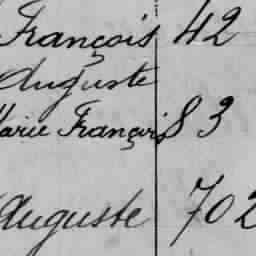 François 42
Auguste
Marie François 83
Auguste 702